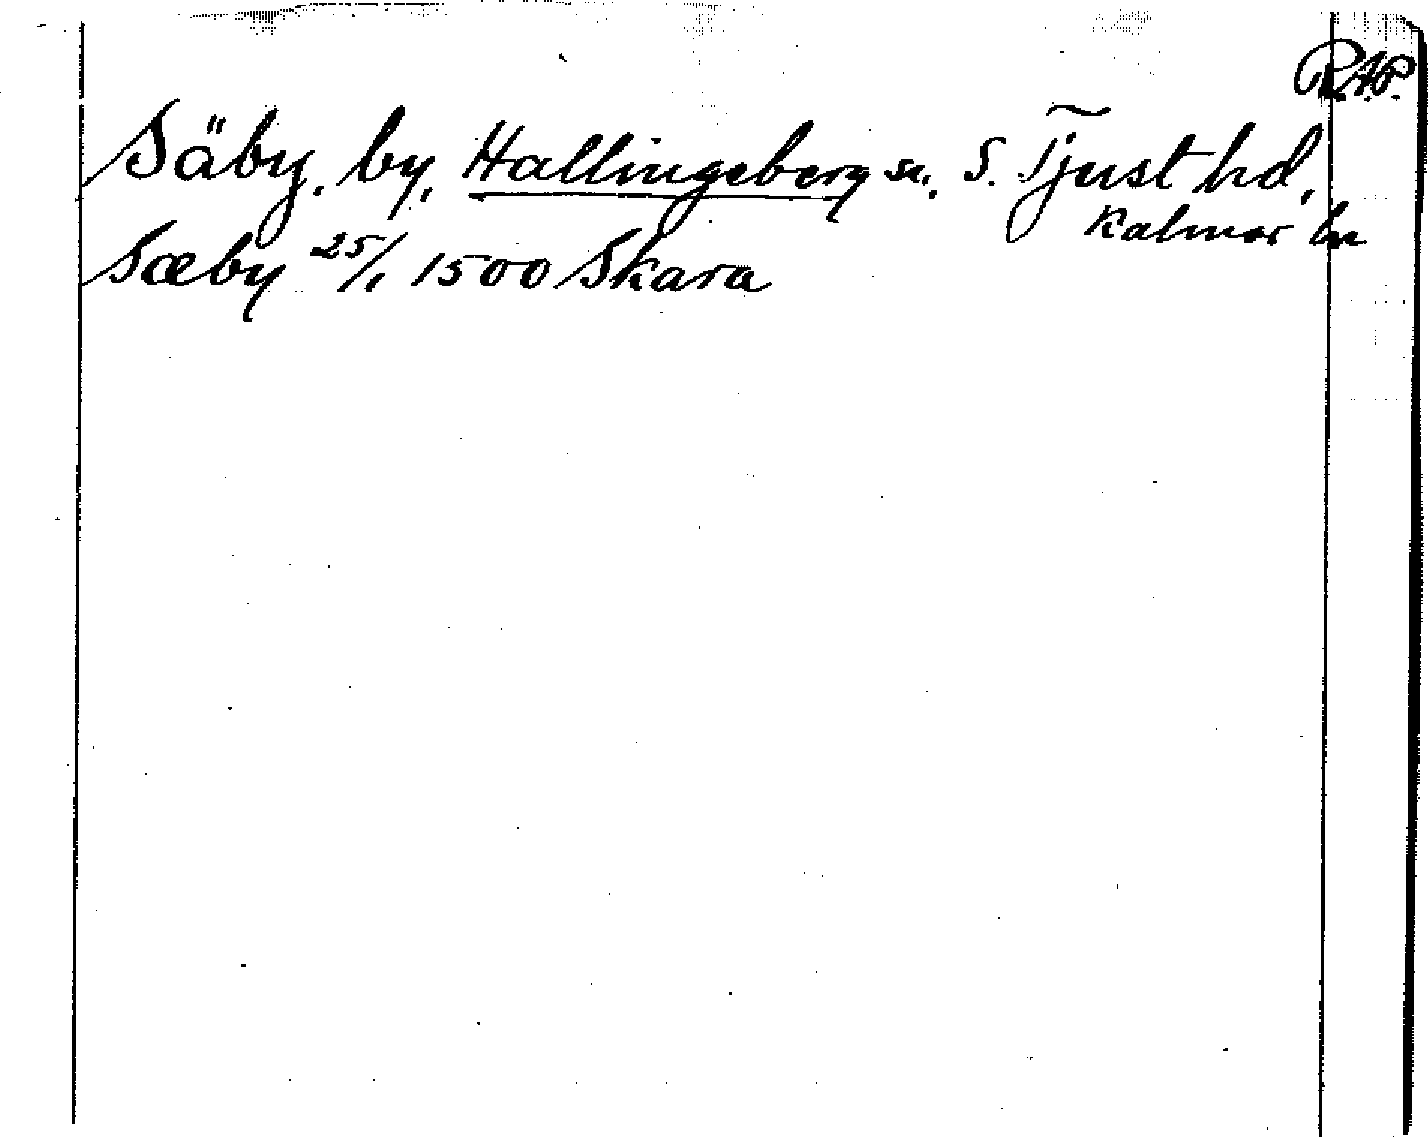 RAP.
Säby, by, Hallingeberg sn, S. Tjust hd,
Kalmar ln
Sæby 25/1 1500 Skara